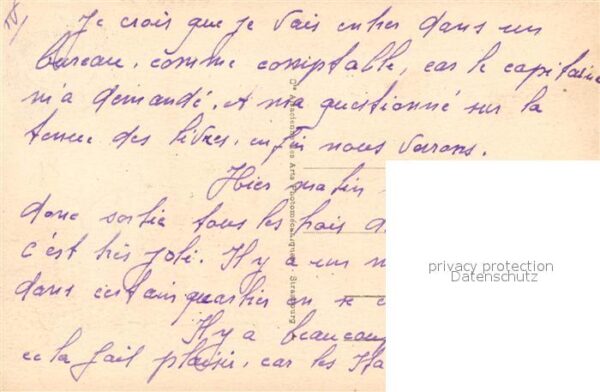 IV/
Je crois que je vais entrer dans un
bureau, comme comptable, car le capitaine
m'a demandé. Et m'a questionné sur la
tenue des livres, enfin nous verrons.
Hier matin
donc sortie tous les trois d
c'est très joli. Il y a un
dans certain quartier on se c
Il y a beaucoup
cela fait plaisir, car les Ha
Cie Alsacienne des Arts Photomécaniques - Strasbourg
privacy protection
Datenschutz